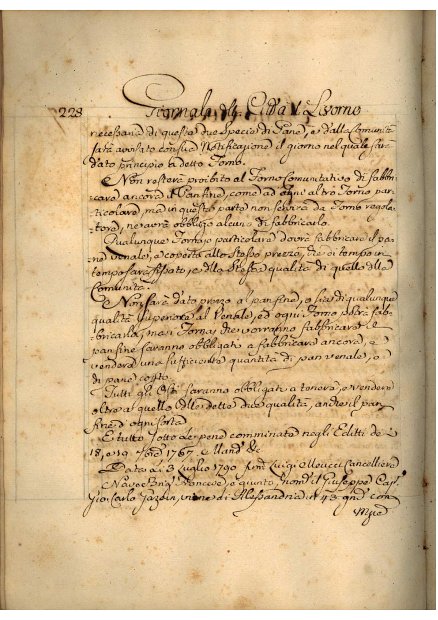 228 Giornale della Città di Livorno
necessarie di queste due Specie di Pane, e dalla Comunità
sarà avvisato con sua Notificazione il giorno nel quale sarà
dato principio a detto Forno.
Non resterà proibito al Forno Comunitativo di fabbri-
care ancora il Panfine, come ad ogni altro Forno par-
ticolare, ma in questa parte non servirà da Forno regola-
tore, ne avrà obbligo alcuno di fabbricarlo.
Qualunque Fornajo particolare dovrà fabbricare il pa-
ne Venale, e coperta allo stesso prezzo, che di tempo in
tempo sarà fissato, e della stessa qualità di quello della
Comunità.
Non sarà dato prezzo al panfine, o sia di qualunque
qualità superiore al Venale, ed ogni Forno potrà fab-
bricarla, ma i Fornaj che vorranno fabbricare il
panfine saranno obbligati a fabbricare ancora, e
vendere una sufficiente quantità di pan venale, e
di pane
Tutti gli Osti saranno obbligati a tenere, e vendere
oltre a quello delle dette due qualità, anche il pan
fine d'ogni sorta
E tutto sotto le pene comminate negli Editti de
18, e 19 1767, e &c
Data a i 3 Luglio 1790 Luigi Cancelliere
Nave giunto, nom.ta il Giuseppe Cap.
Gio: Carlo viene di Alessandria in 43 con